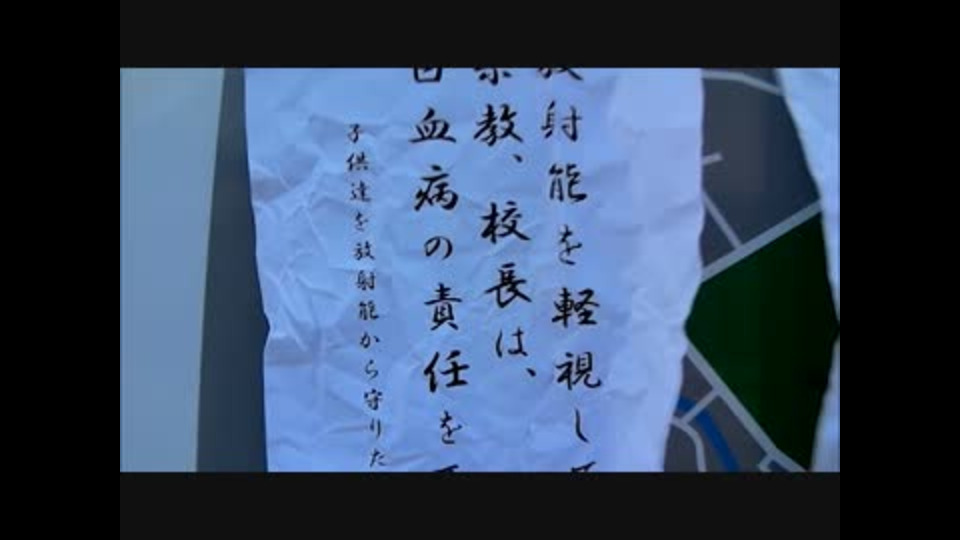 放射能を軽視し
教、校長は、
白血病の責任を
子供達を放射能から守りた